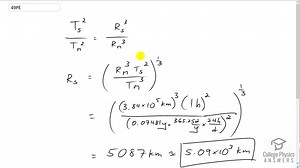 49PE
T_s^2 / T_m^2 = R_s^3 / R_m^3
R_s = (R_m^3 T_s^2 / T_m^3)^(1/3)
= ((3.84×10^5 km)^3 (1h)^2 / (0.07481y × 365.25d/y × 24h/d)^2)^(1/3)
= 5087 km ≈ 5.09×10^3 km
College Physics
ANSWERS